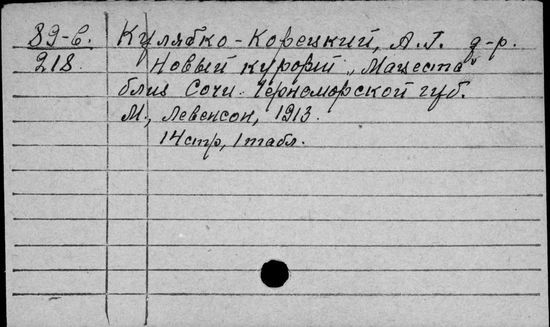 89-6. Кулябко-Корецкий, А.Г. д-р.
218. Новый курорт „Мацеста"
близ Сочи Черноморской губ.
М., Левенсон, 1913.
14 стр, 1 табл.